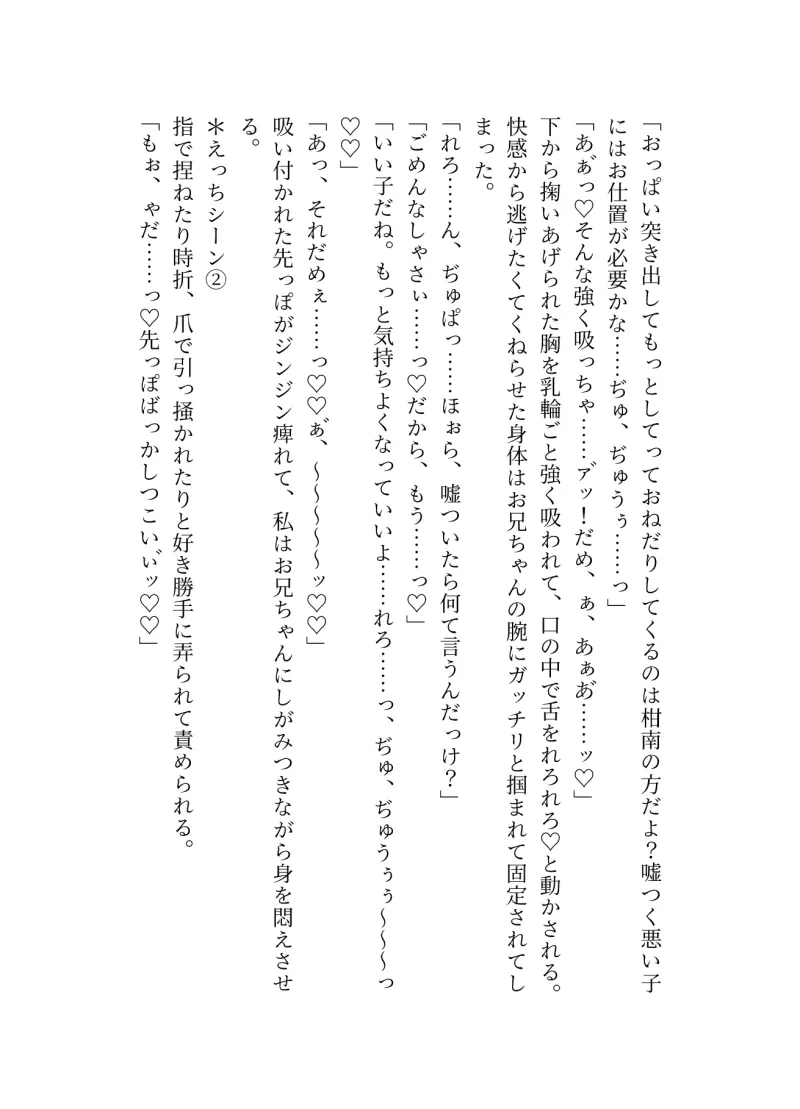 「おっぱい突き出してもっとしてっておねだりしてくるのは柑南の方だよ？嘘つく悪い子
にはお仕置が必要かな……ぢゅ、ぢゅうぅ……っ」
「あぁ゙っ♡そんな強く吸っちゃ……ア゙ッ！だめ、ぁ、あぁあ゙……ッ♡」
下から掬いあげられた胸を乳輪ごと強く吸われて、口の中で舌をれろれろ♡と動かされる。
快感から逃げたくてくねらせた身体はお兄ちゃんの腕にガッチリと掴まれて固定されてし
まった。
「れろ……ん、ぢゅぱっ……ほぉら、嘘ついたら何て言うんだっけ？」
「ごめんなしゃさぃ……っ♡だから、もう……っ♡」
「いい子だね。もっと気持ちよくなっていいよ……れろ……っ、ぢゅ、ぢゅうぅぅ〜〜〜っ
♡♡」
「あっ、それだめぇ……っ♡♡あ゙、〜〜〜〜〜ッ♡♡」
吸い付かれた先っぽがジンジン痺れて、私はお兄ちゃんにしがみつきながら身を悶えさせ
る。
＊えっちシーン②
指で捏ねたり時折、爪で引っ掻かれたりと好き勝手に弄られて責められる。
「もぉ、ゃだ……っ♡先っぽばっかしつこいぃ゙ッ♡♡」